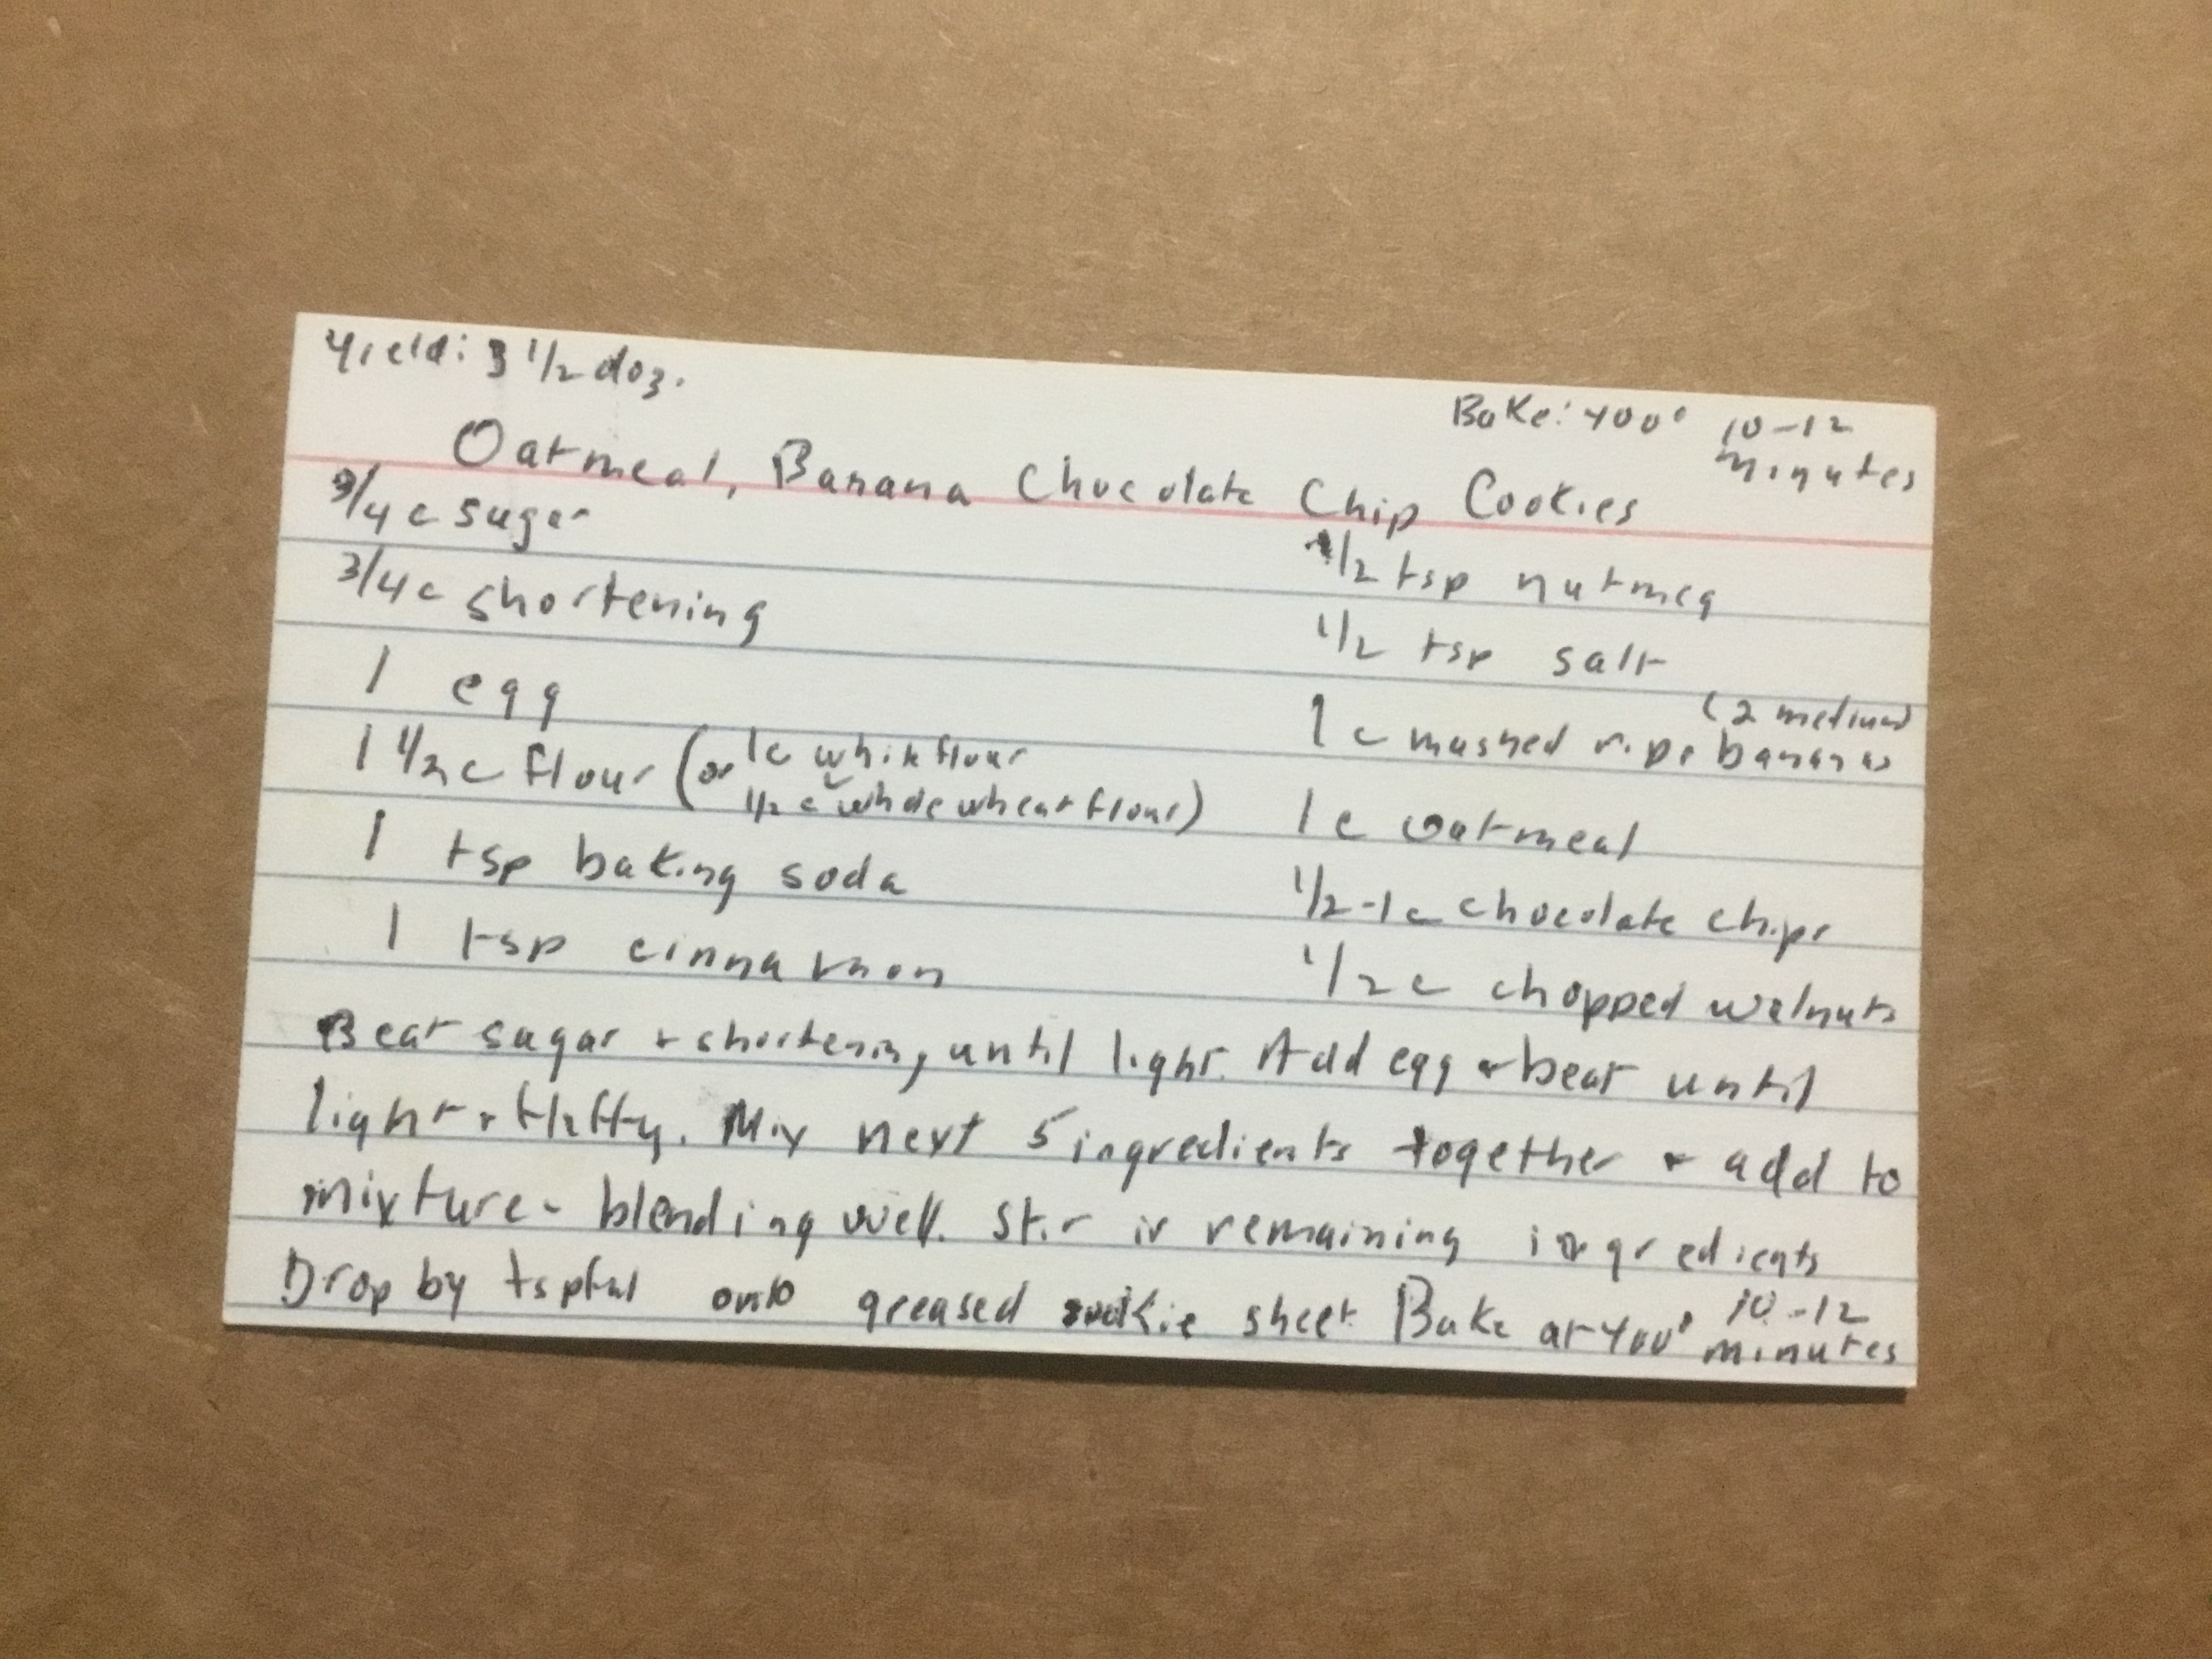 Yield: 3 1/2 doz.
Bake: 400° 10-12 minutes
Oatmeal, Banana Chocolate Chip Cookies
3/4 c sugar
3/4 c shortening
1 egg
1 1/2 c flour (or 1c white flour
1/2 c whole wheat flour)
1 tsp baking soda
1 tsp cinnamon
1/2 tsp nutmeg
1/2 tsp salt
(2 medium)
1 c mashed ripe bananas
1 c oatmeal
1/2-1 c chocolate chips
1/2 c chopped walnuts
Beat sugar + shortening until light. Add egg + beat until
light + fluffy. Mix next 5 ingredients together + add to
mixture - blending well. Stir in remaining ingredients
Drop by tspful onto greased cookie sheet. Bake at 400° 10-12 minutes